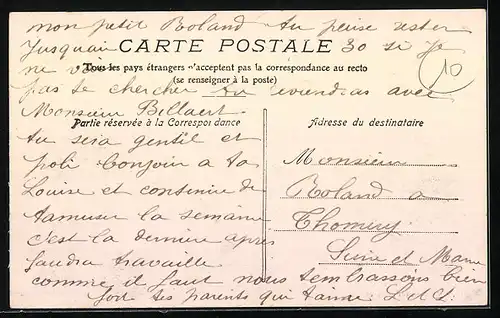 mon petit Roland tu peuse rester
jusquau 30 si je
CARTE POSTALE
10
Tous les pays étrangers n'acceptent pas la correspondance au recto
(se renseigner à la poste)
ne
pas se chercher tu viendras avec
Monsieur Billaert
Partie réservée à la Correspondance
tu sera gentil et
poli bonjour a ta
Louise et continue de
tamuser la semaine
c'est la derniere apres
faudra travaille
comme il faut nous tembrassons bien
fort tes parents qui t'aime L et L
Adresse du destinataire
Monsieur
Roland a
Thomery
Seine et Marne